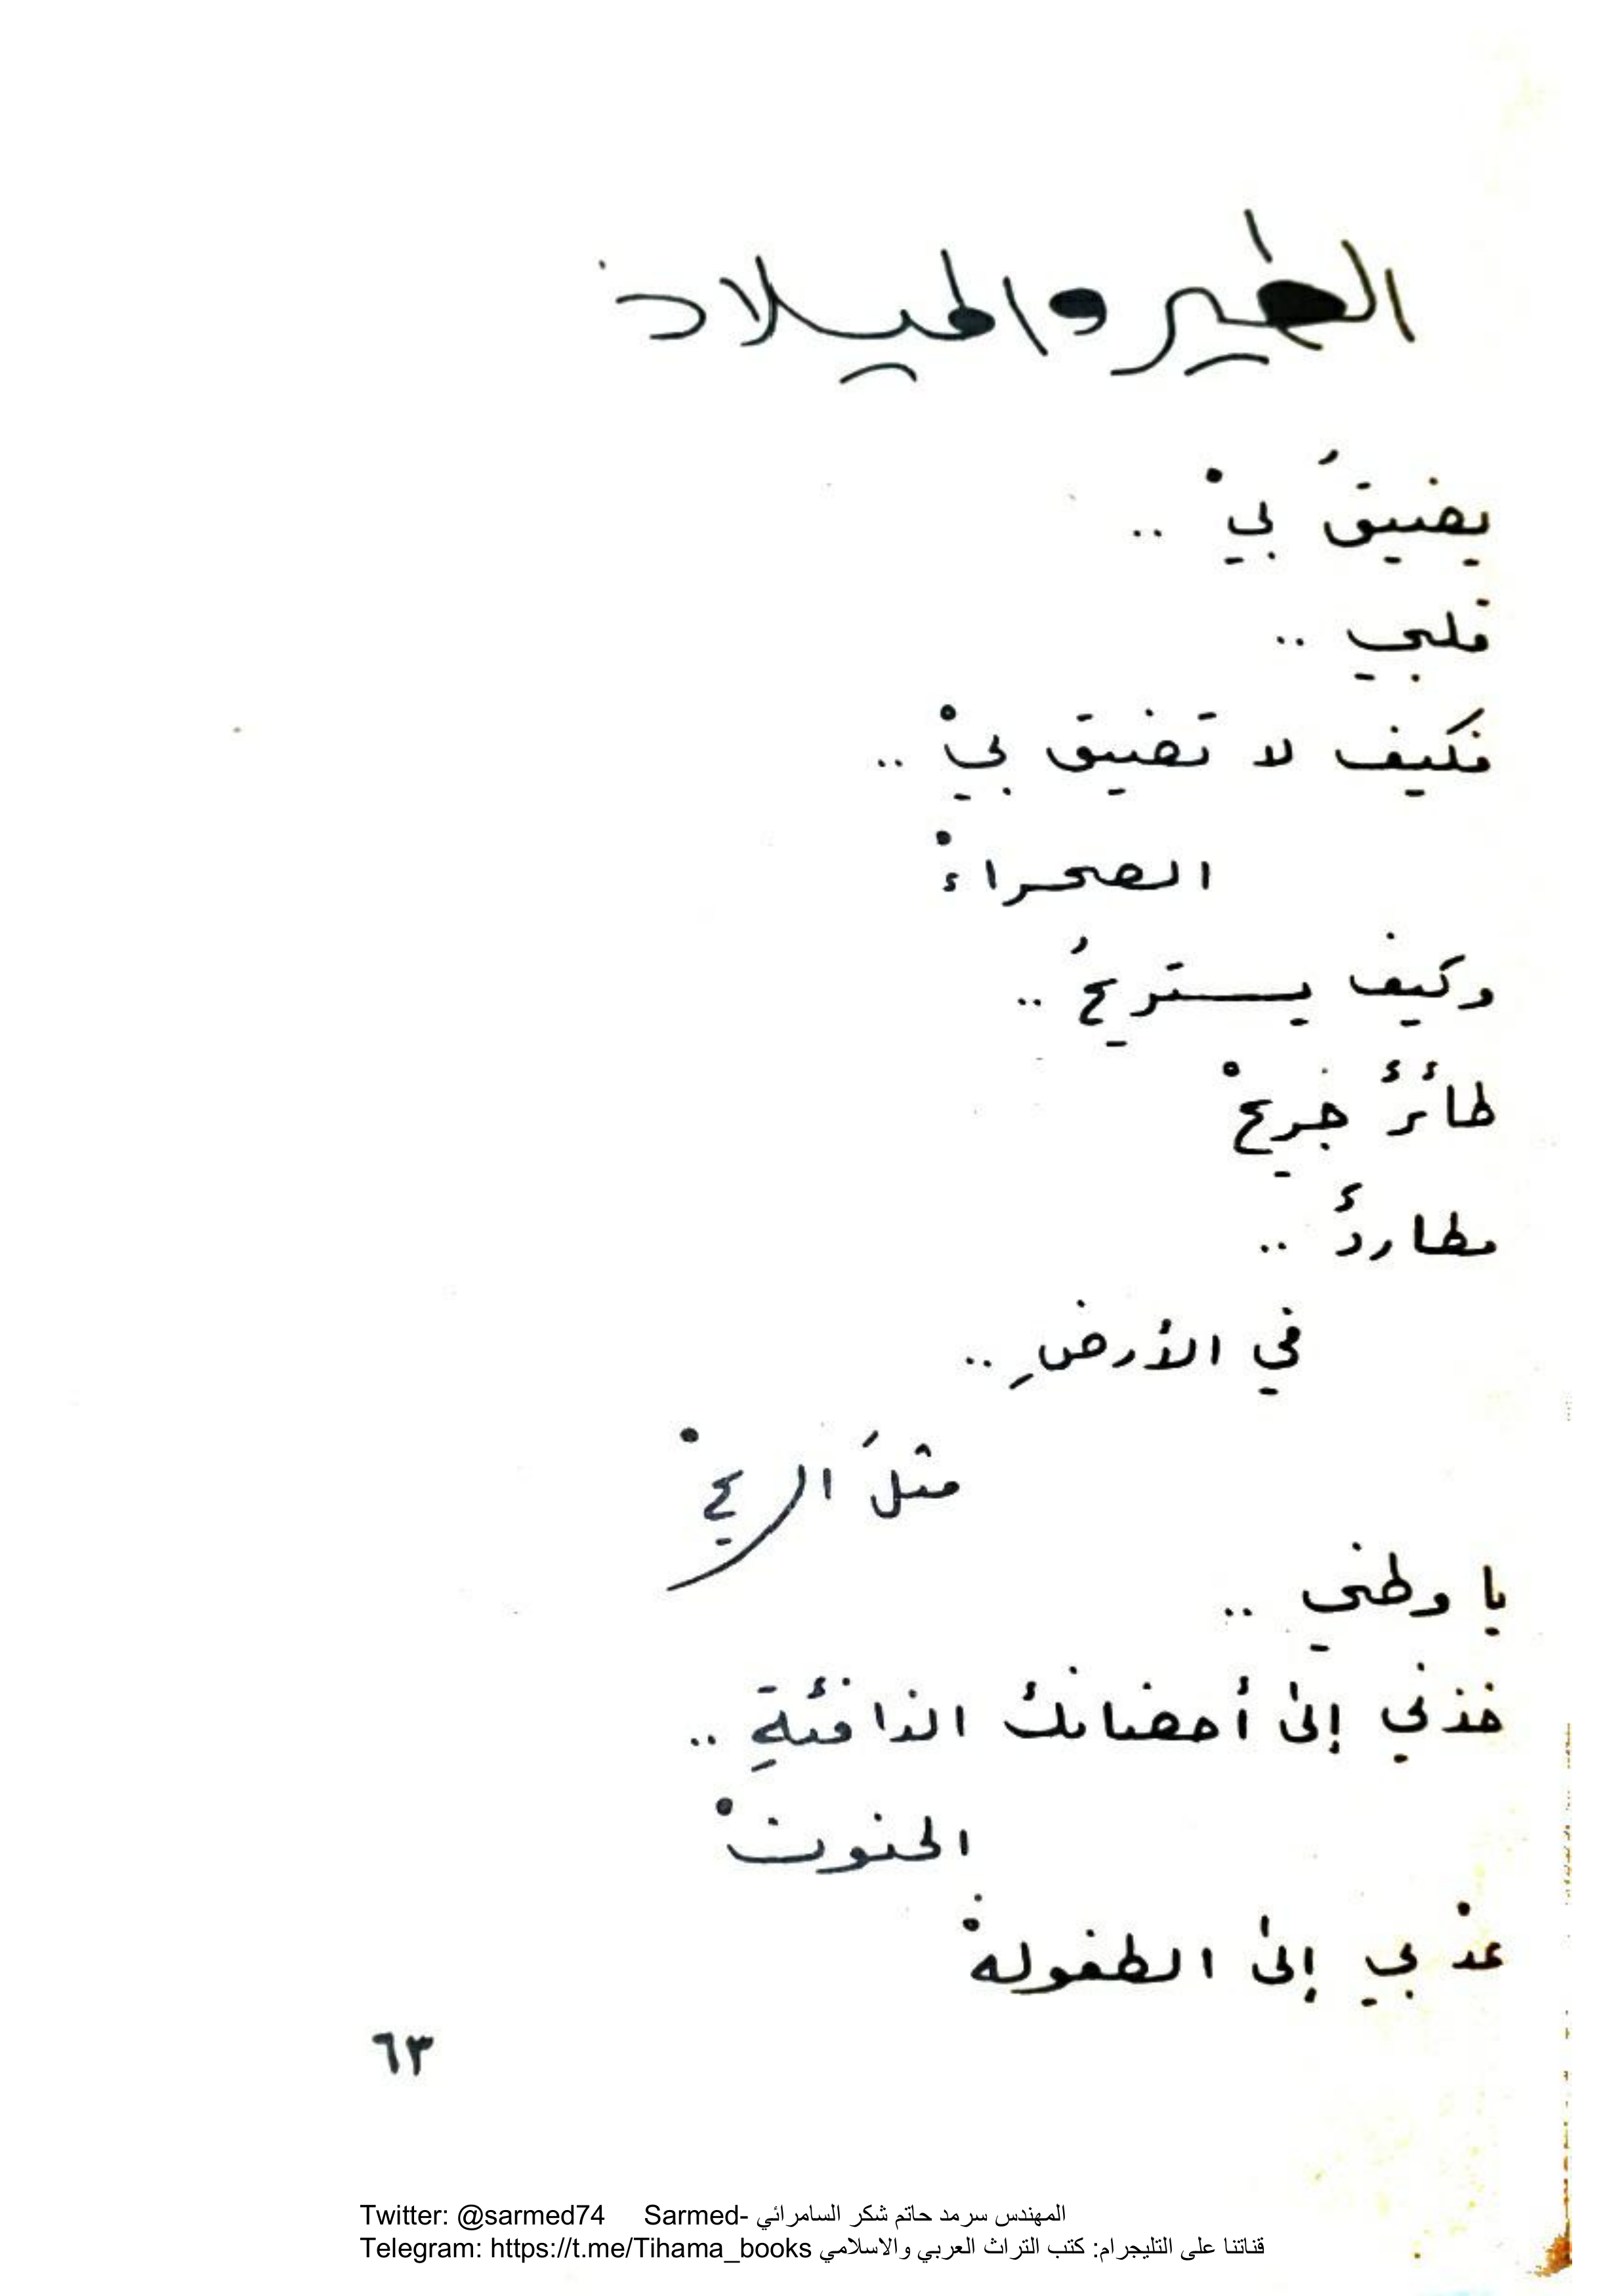 الطير والميلاد
يضيقُ بيْ ..
قلبي ..
فكيف لا تضيق بيْ ..
الصحراءْ
وكيف يستريحُ ..
طائرٌ جريحْ
مطاردٌ ..
في الأرضِ ..
مثلَ الريحْ
يا وطني ..
خذني إلى أحضانك الدافئةِ ..
الحنونْ
عدْ بي إلى الطفولةْ
٦٣
Twitter: @sarmed74 Sarmed- المهندس سرمد حاتم شكر السامرائي
Telegram: https://t.me/Tihama_books قناتنا على التليجرام: كتب التراث العربي والاسلامي